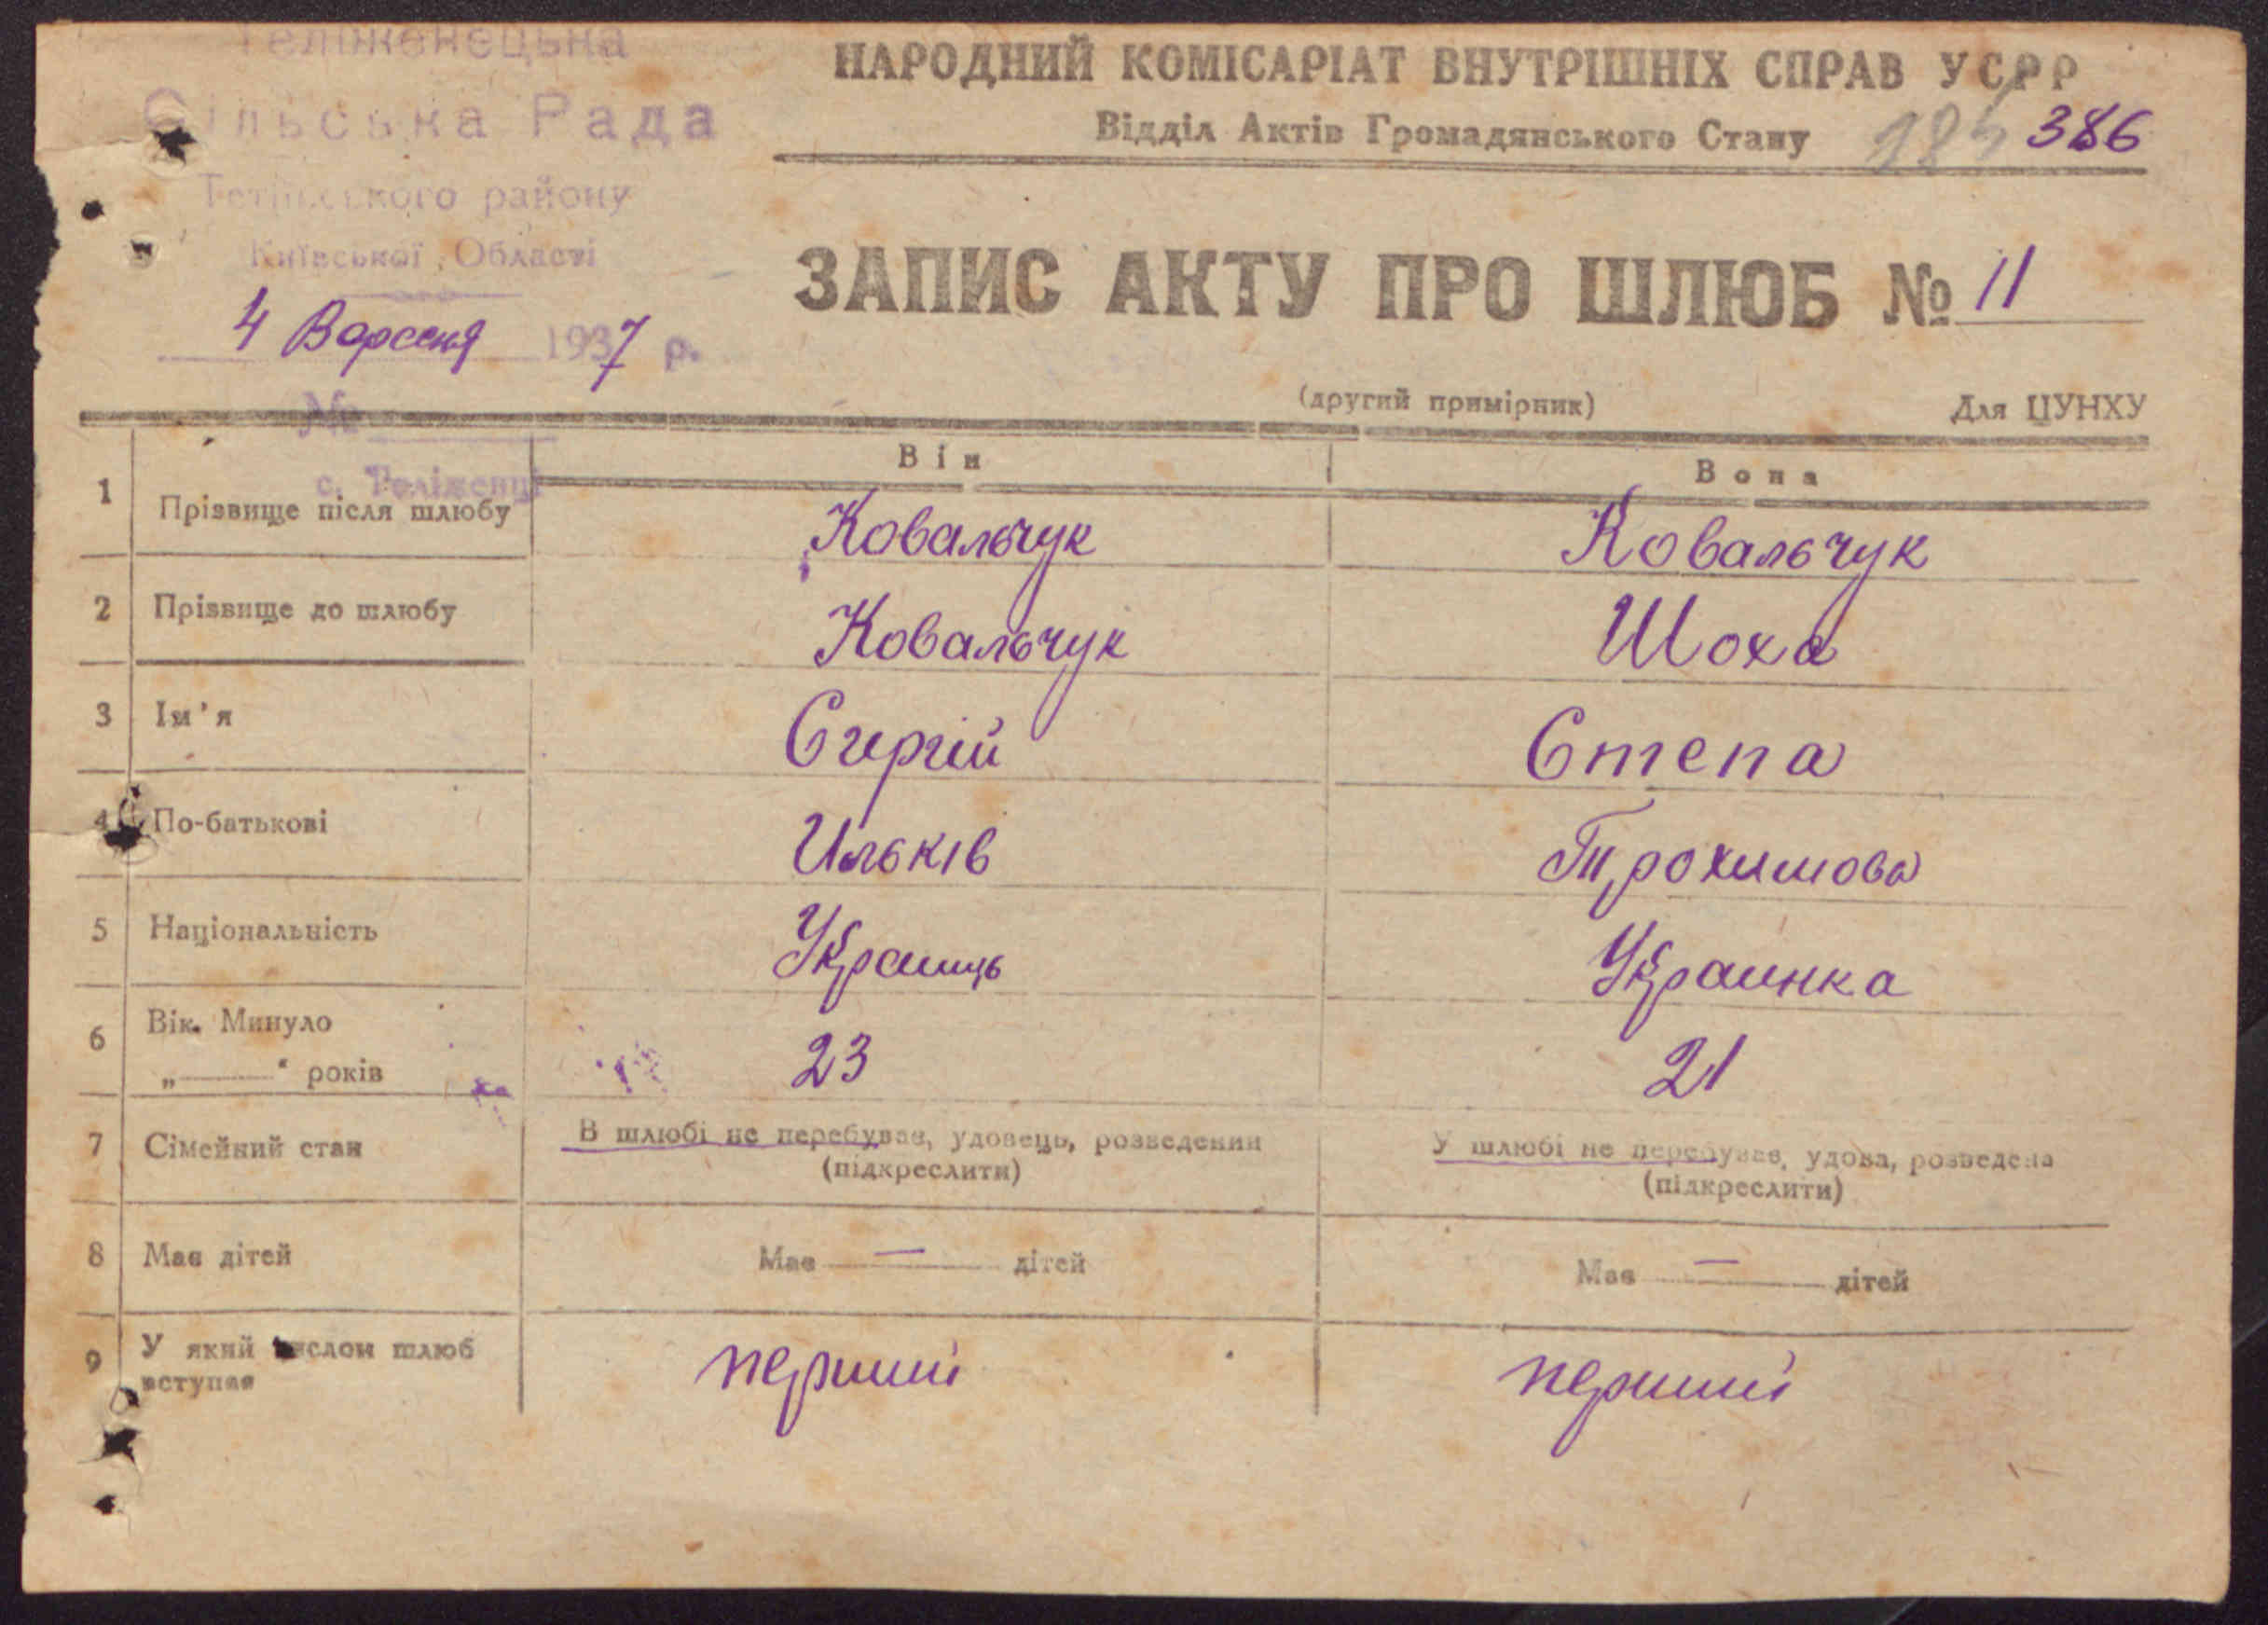 Теліженецька
Сільська Рада
Тетіївського району
Київської Області
4 Вересня 1937 р.
№
с. Теліженці
НАРОДНИЙ КОМІСАРІАТ ВНУТРІШНІХ СПРАВ УСРР
Відділ Актів Громадянського Стану
386
ЗАПИС АКТУ ПРО ШЛЮБ № 11
(другий примірник) Для ЦУНХУ
Він Вона
1 Прізвище після шлюбу Ковальчук Ковальчук
2 Прізвище до шлюбу Ковальчук Шоха
3 Ім'я Сергій Степа
4 По-батькові Ильків Трохимова
5 Національність Украинць Украинка
6 Вік. Минуло
„——“ років 23 21
7 Сімейний стан В шлюбі не перебував, удовець, розведений У шлюбі не перебував, удова, розведена
(підкреслити) (підкреслити)
8 Має дітей Має — дітей Має — дітей
9 У який числом шлюб
вступає перший перший